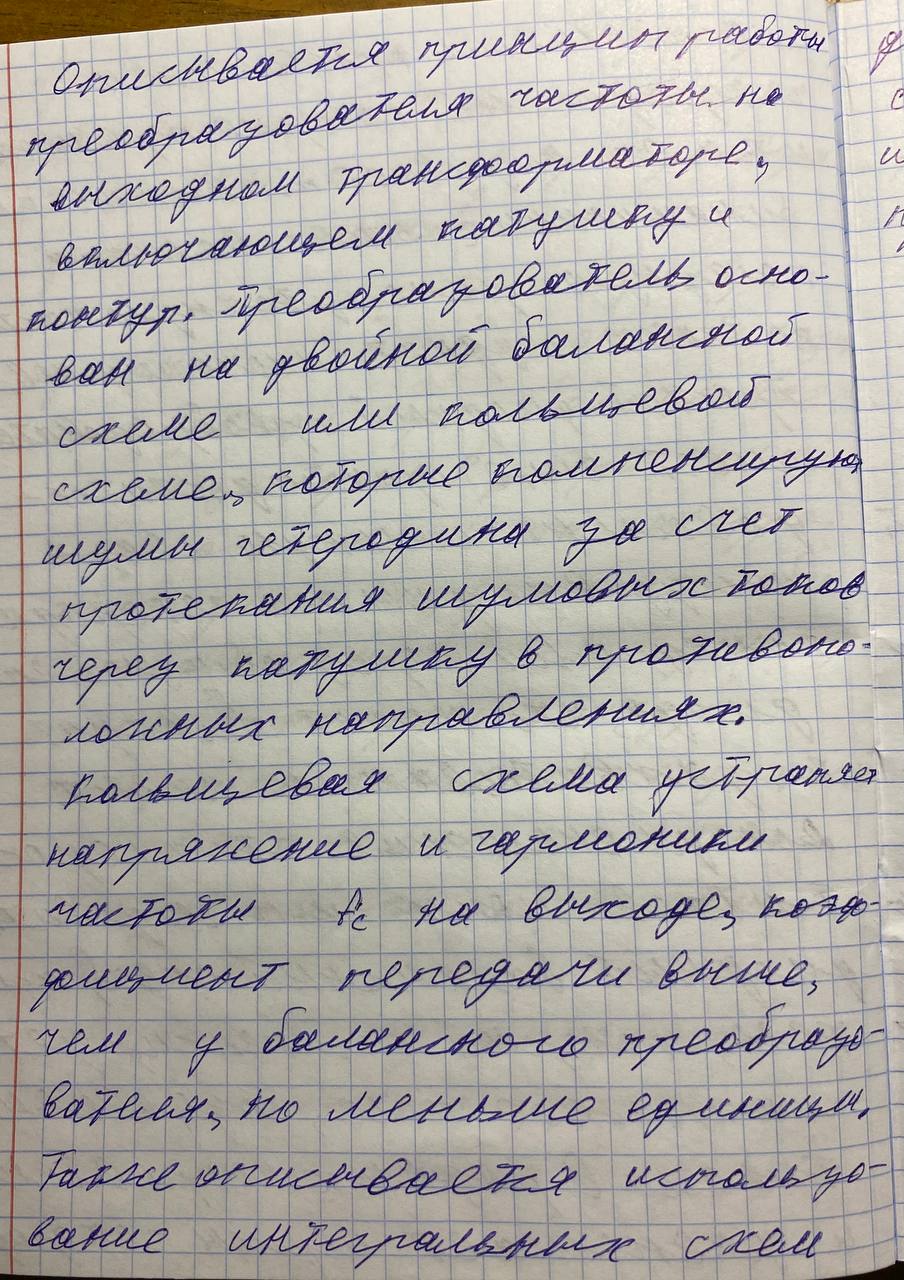 Описывается принцип работы
преобразователя частоты на
выходном трансформаторе,
включающем катушку и
контур. Преобразователь осно-
ван на двойной балансной
схеме или кольцевой
схеме, которые компенсируют
шумы гетеродина за счет
протекания шумовых токов
через катушку в противопо-
ложных направлениях.
Кольцевая схема устраняет
напряжение и гармоники
частоты fс на выходе, коэф-
фициент передачи выше,
чем у балансного преобразо-
вателя, но меньше единицы.
Также описывается использо-
вание интегральных схем